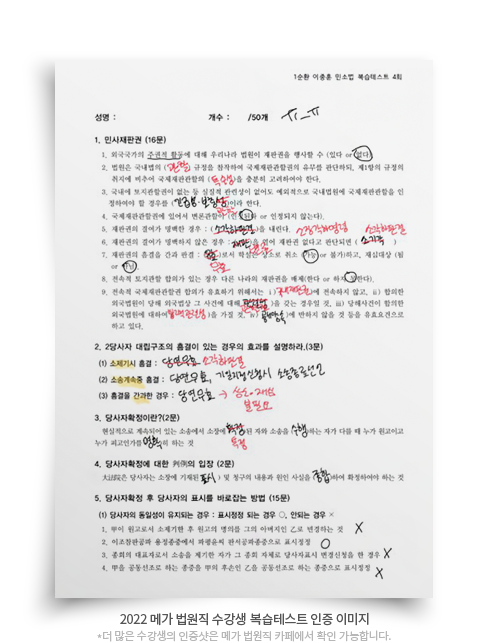 1순환 이종훈 민소법 복습테스트 4회
성명 : 개수 : /50개 ㅠ_ㅠ
1. 민사재판권 (16문)
1. 외국국가의 주권적 활동에 대해 우리나라 법원이 재판권을 행사할 수 (있다 or 없다)
2. 법원은 국내법의 (관할) 규정을 참작하여 국제재판관할권의 유무를 판단하되, 제1항의 규정의
취지에 비추어 국제재판관할의 (특수성)을 충분히 고려하여야 한다.
3. 국내에 토지관할권이 없는 등 실질적 관련성이 없어도 예외적으로 국내법원에 국제재판관할을 인
정하여야 할 경우를 (긴급 )이라 한다.
4. 국제재판관할권에 있어서 변론관할이 (인정된다 or 인정되지 않는다).
5. 재판권의 결여가 명백한 경우 : (소장각하명령)을 내린다. 소장각하명령 소각하판결
6. 재판권의 결여가 명백하지 않은 경우 : 재판 을 열어 재판권 없다고 판단되면 (소각하)
7. 재판권의 흠결을 간과 판결 : 로서 확정 상소로 취소 (가능 or 불가)하고, 재심대상 (됨
or 안됨)
무효
8. 전속적 토지관할 합의가 있는 경우 다른 나라의 재판권을 배제(한다 or 하지 못한다).
9. 전속적 국제재판관할권 합의가 유효하기 위해서는 i) 에 전속하지 않고, ii) 합의한
외국법원이 당해 외국법상 그 사건에 대해 을 갖는 경우일 것, iii) 당해사건이 합의한
외국법원에 대하여 합리적 관련성 을 가질 것, iv) 에 반하지 않을 것 등을 유효요건으로
하고 있다.
2. 2당사자 대립구조의 흠결이 있는 경우의 효과를 설명하라.(3문)
(1) 소제기시 흠결 : 당연무효 소각하판결
(2) 소송계속중 흠결 : 당연무효, 기일지정신청시 소송종료선언
(3) 흠결을 간과한 경우 : 당연무효 → 상소·재심
불필요
3. 당사자확정이란?(2문)
현실적으로 계속되어 있는 소송에서 소장에 확장 된 자와 소송을 수행 하는 자가 다를 때 누가 원고이고
누가 피고인가를 명확 히 하는 것 특정
4. 당사자확정에 대한 判例의 입장 (2문)
大法院은 당사자는 소장에 기재된 표시 및 청구의 내용과 원인 사실을 종합 하여 확정하여야 하는 것
5. 당사자확정 후 당사자의 표시를 바로잡는 방법 (15문)
(1) 당사자의 동일성이 유지되는 경우 : 표시정정 되는 경우 ○, 안되는 경우 ×
1. 甲이 원고로서 소제기한 후 원고의 명의를 그의 아버지인 乙로 변경하는 것 X
2. 이조참판공파 용정종중에서 하평윤씨 판서공파종중으로 표시정정 O
3. 종회의 대표자로서 소송을 제기한 자가 그 종회 자체로 당사자표시 변경신청을 한 경우 X
4. 甲을 공동선조로 하는 종중을 甲의 후손인 乙을 공동선조로 하는 종중으로 표시정정 X
2022 메가 법원직 수강생 복습테스트 인증 이미지
*더 많은 수강생의 인증샷은 메가 법원직 카페에서 확인 가능합니다.